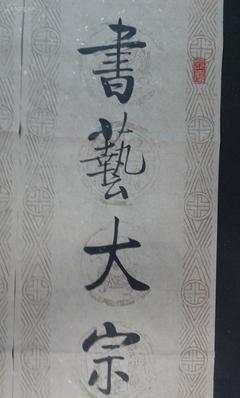 書藝大宗